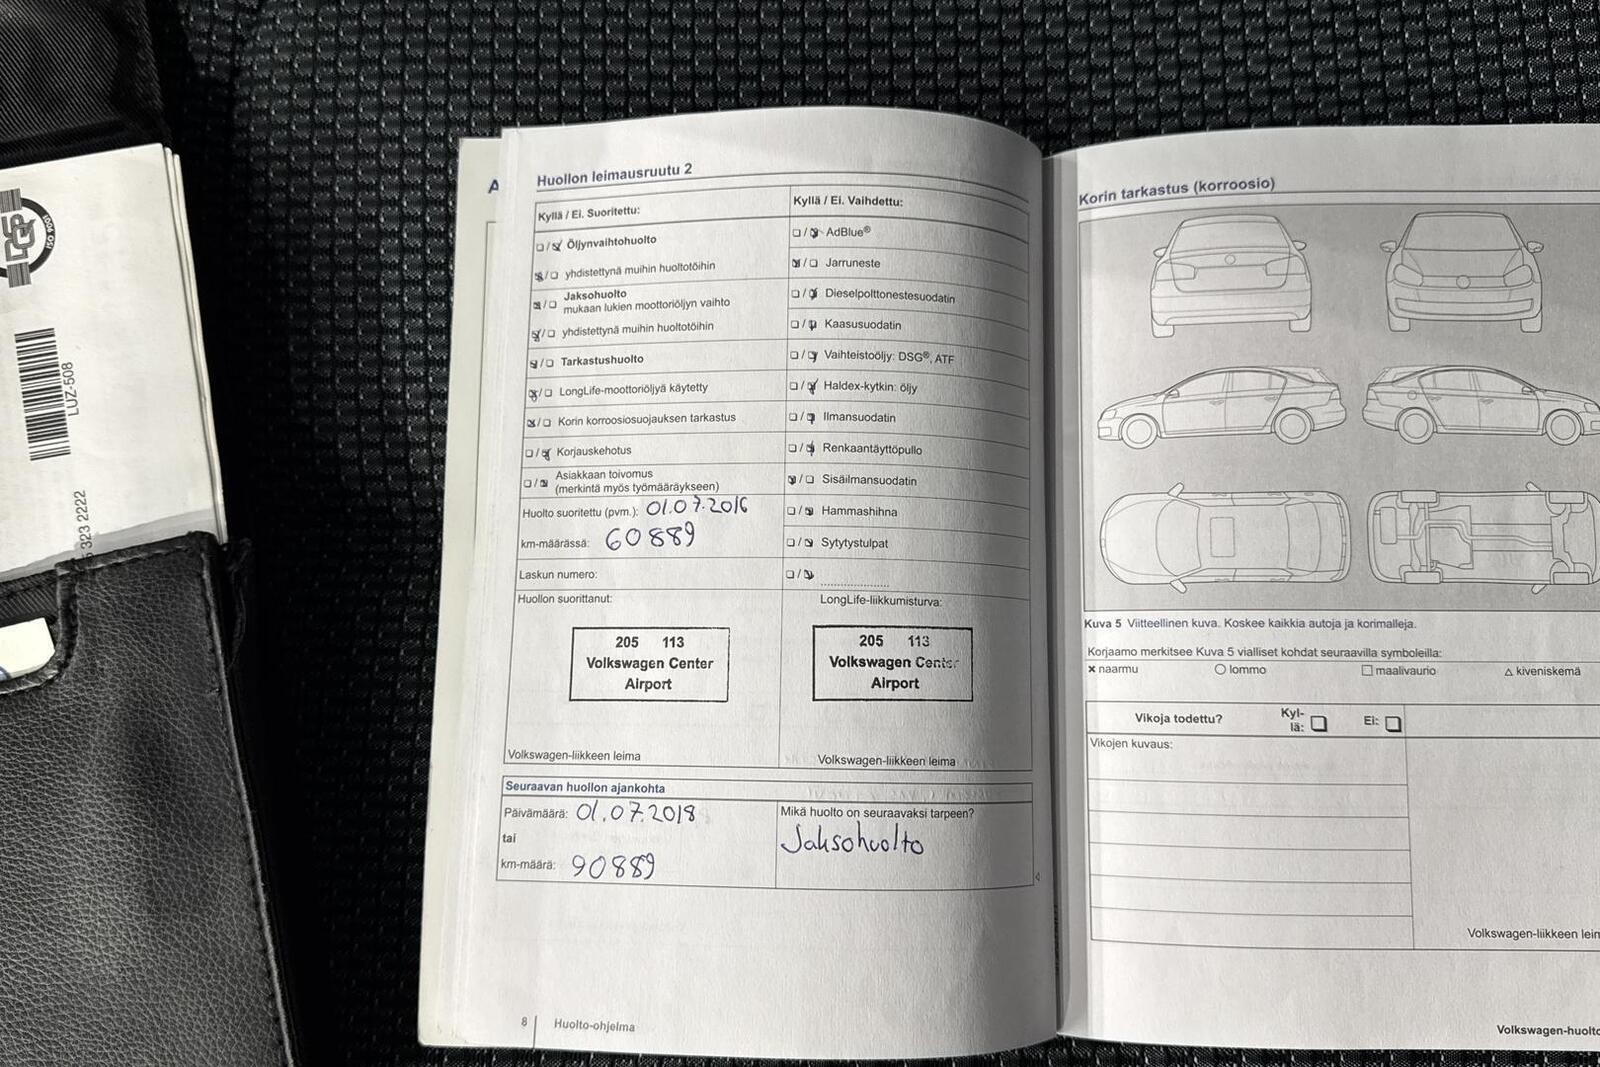 DQS
ISO 9001
LUZ-508
323 2222
A
Huollon leimausruutu 2
Kyllä / Ei. Suoritettu:
Öljynvaihtohuolto
yhdistettynä muihin huoltotöihin
Jaksohuolto
mukaan lukien moottoriöljyn vaihto
yhdistettynä muihin huoltotöihin
Tarkastushuolto
LongLife-moottoriöljyä käytetty
Korin korroosiosuojauksen tarkastus
Korjauskehotus
Asiakkaan toivomus
(merkintä myös työmääräykseen)
Huolto suoritettu (pvm.): 01.07.2016
km-määrässä: 60889
Laskun numero:
Kyllä / Ei. Vaihdettu:
AdBlue®
Jarruneste
Dieselpolttonestesuodatin
Kaasusuodatin
Vaihteistoöljy: DSG®, ATF
Haldex-kytkin: öljy
Ilmansuodatin
Renkaantäyttöpullo
Sisäilmansuodatin
Hammashihna
Sytytystulpat
Huollon suorittanut:
205 113
Volkswagen Center
Airport
Volkswagen-liikkeen leima
LongLife-liikkumisturva:
205 113
Volkswagen Center
Airport
Volkswagen-liikkeen leima
Seuraavan huollon ajankohta
Päivämäärä: 01.07.2018
tai
km-määrä: 90889
Mikä huolto on seuraavaksi tarpeen?
Jaksohuolto
8 Huolto-ohjelma
Korin tarkastus (korroosio)
Kuva 5 Viitteellinen kuva. Koskee kaikkia autoja ja korimalleja.
Korjaamo merkitsee Kuva 5 vialliset kohdat seuraavilla symboleilla:
× naarmu ○ lommo □ maalivaurio △ kiveniskemä
Vikoja todettu? Kyl-
lä: Ei:
Vikojen kuvaus:
Volkswagen-liikkeen leim
Volkswagen-huolto